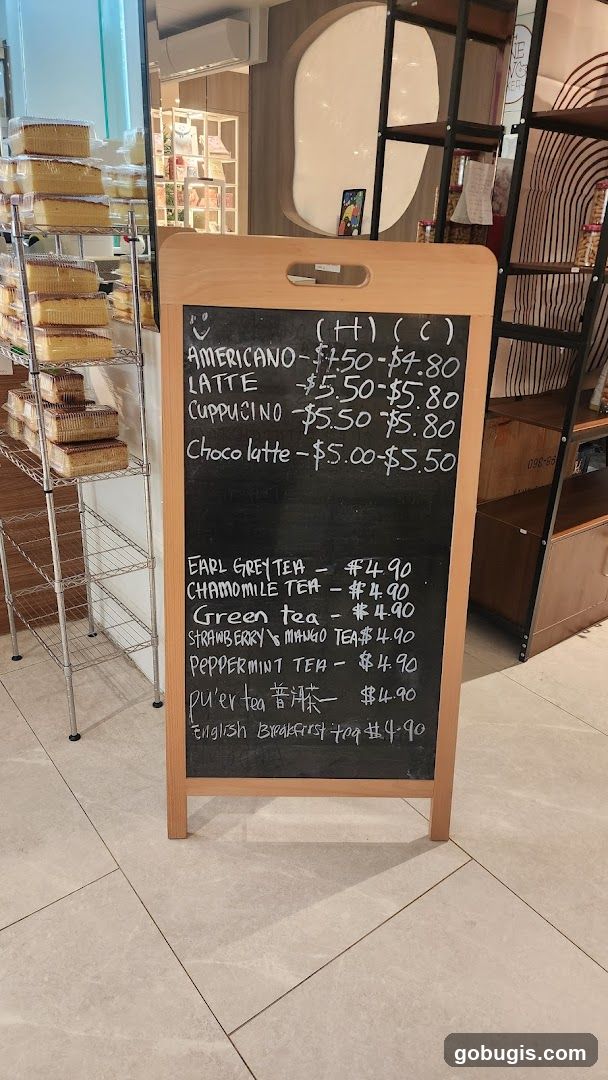 (H) (C)
AMERICANO - $4.50 - $4.80
LATTE - $5.50 - $5.80
CUPPUCINO - $5.50 - $5.80
Chocolatte - $5.00 - $5.50
EARL GREY TEA - $4.90
CHAMOMILE TEA - $4.90
Green tea - $4.90
STRAWBERRY & MANGO TEA $4.90
PEPPERMINT TEA - $4.90
pu'er tea 普洱茶 - $4.90
English Breakfirst tea $4.90
gobugis.com